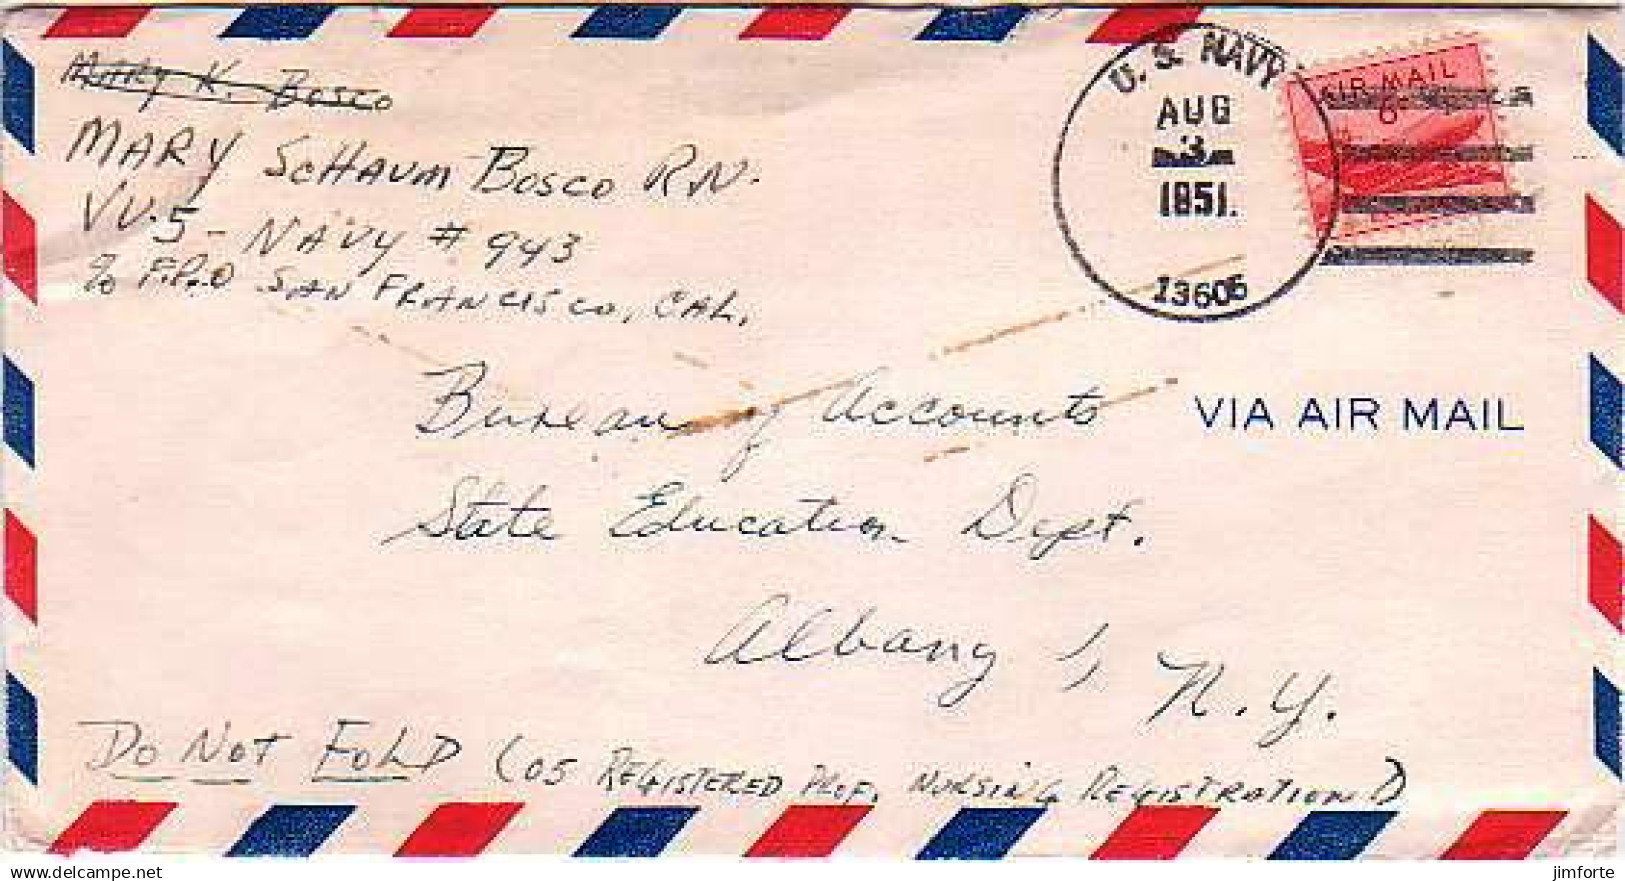 MARY K. BOSCO
MARY SCHAUM BOSCO RN.
VU.5 - NAVY # 943
℅ F.P.O SAN FRANCISCO, CAL,
U.S. NAVY
AUG
3
1951.
13605
AIR MAIL
6¢
Bureau of Accounts
VIA AIR MAIL
State Education Dept.
Albany, N.Y.
DO NOT FOLD (05 REGISTERED PROF. NURSING REGISTRATION)
delcampe.net
jimforte